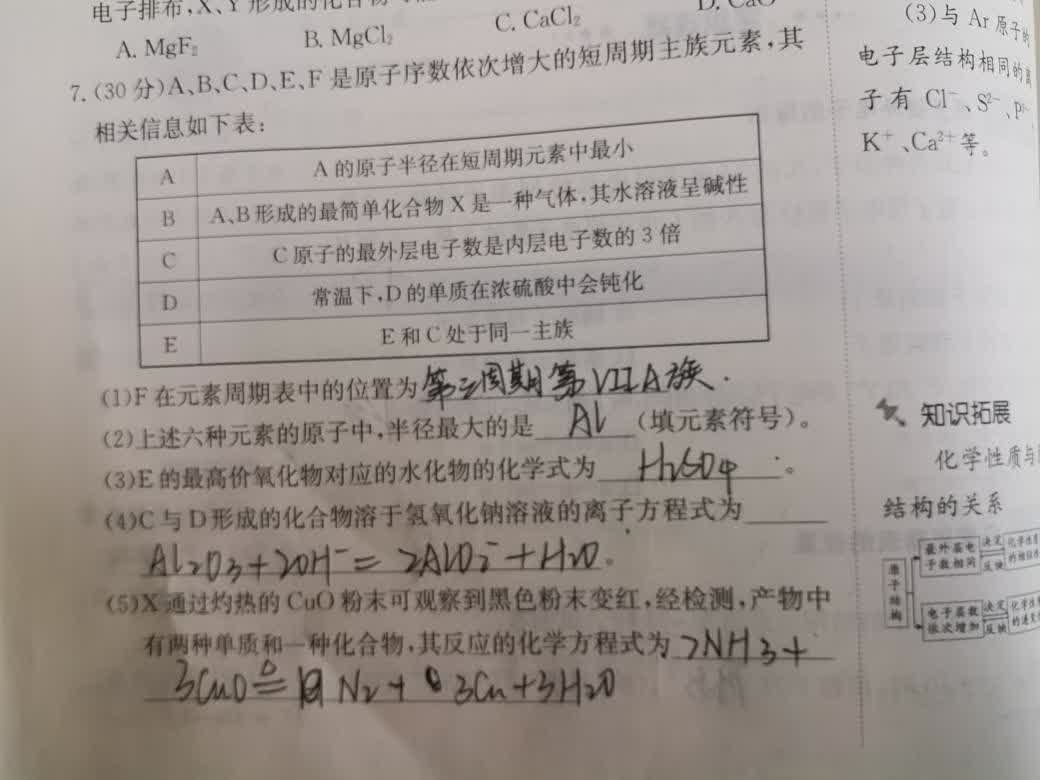 电子排布,X、Y形成的化合物
A. MgF₂ B. MgCl₂ C. CaCl₂ D. CaO
7. (30分)A、B、C、D、E、F是原子序数依次增大的短周期主族元素,其
相关信息如下表:
A A的原子半径在短周期元素中最小
B A、B形成的最简单化合物X是一种气体,其水溶液呈碱性
C C原子的最外层电子数是内层电子数的3倍
D 常温下,D的单质在浓硫酸中会钝化
E E和C处于同一主族
(1)F在元素周期表中的位置为第三周期第VIIA族.
(2)上述六种元素的原子中,半径最大的是 Al (填元素符号)。
(3)E的最高价氧化物对应的水化物的化学式为 H₂SO₄ 。
(4)C与D形成的化合物溶于氢氧化钠溶液的离子方程式为
Al₂O₃+2OH⁻=2AlO₂⁻+H₂O 。
(5)X通过灼热的CuO粉末可观察到黑色粉末变红,经检测,产物中
有两种单质和一种化合物,其反应的化学方程式为 2NH₃+
3CuO≜N₂+3Cu+3H₂O
(3)与Ar原子的
电子层结构相同的离
子有Cl⁻、S²⁻、P³⁻
K⁺、Ca²⁺等。
知识拓展
化学性质与
结构的关系
原子结构
最外层电子数相同
决定
反映
化学性质的相似性
电子层数依次增加
决定
反映